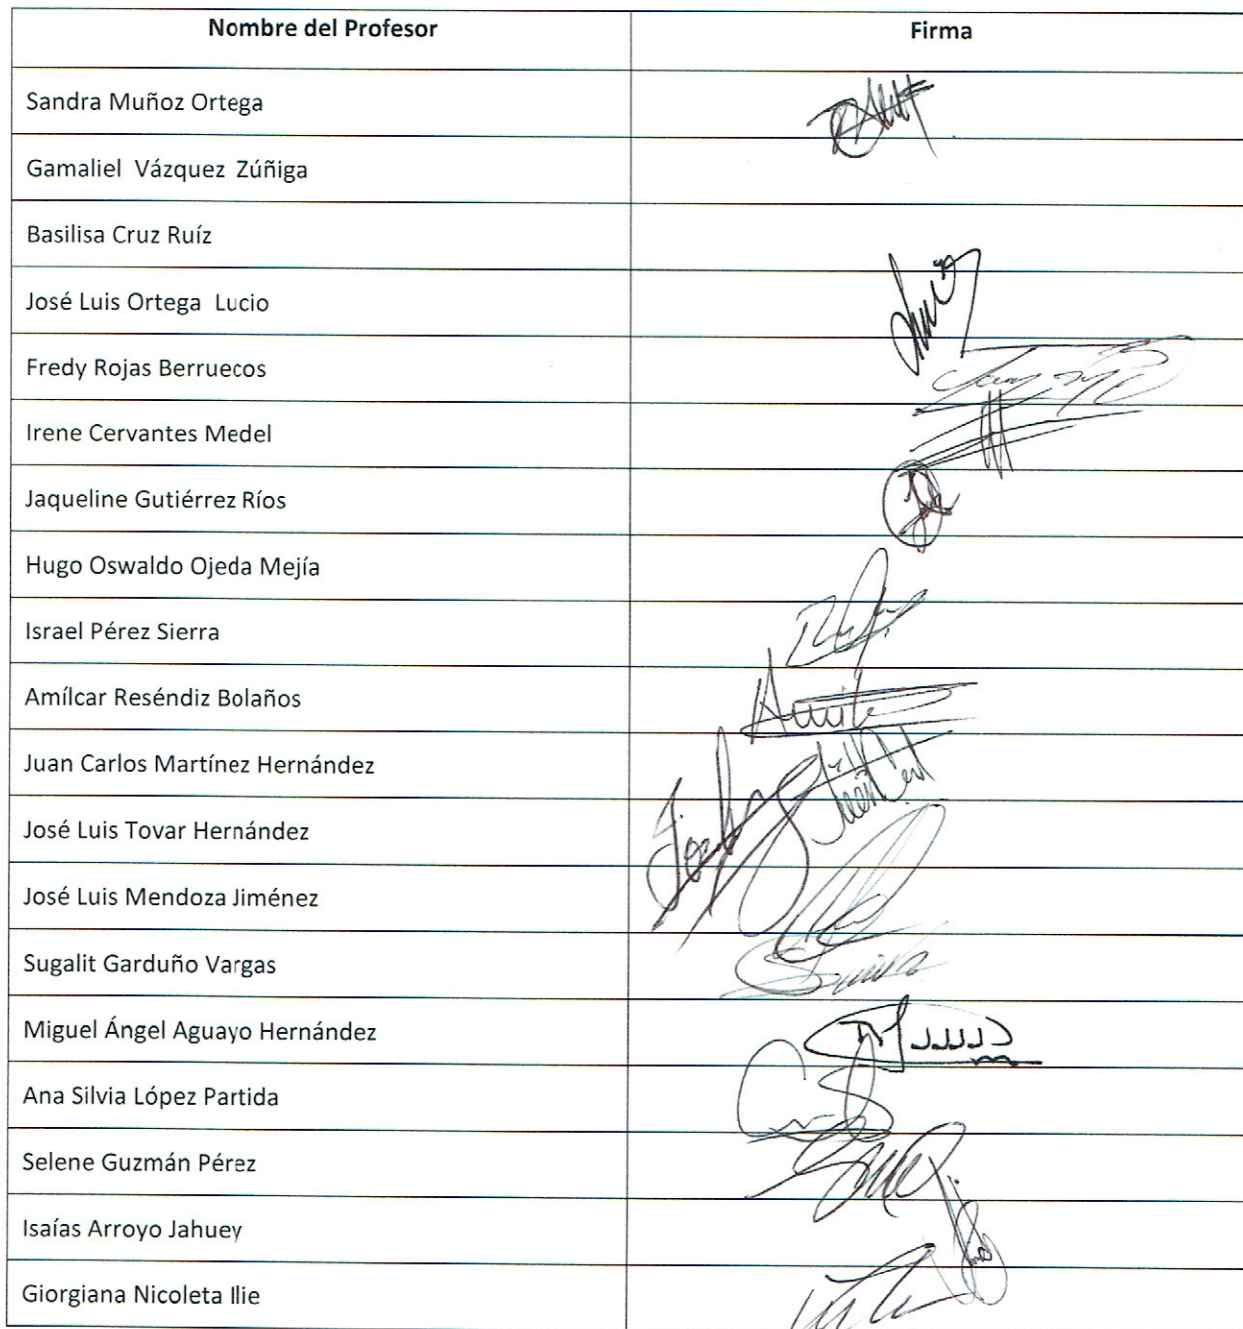 Nombre del Profesor Firma
Sandra Muñoz Ortega
Gamaliel Vázquez Zúñiga
Basilisa Cruz Ruíz
José Luis Ortega Lucio
Fredy Rojas Berruecos
Irene Cervantes Medel
Jaqueline Gutiérrez Ríos
Hugo Oswaldo Ojeda Mejía
Israel Pérez Sierra
Amílcar Reséndiz Bolaños
Juan Carlos Martínez Hernández
José Luis Tovar Hernández
José Luis Mendoza Jiménez
Sugalit Garduño Vargas
Miguel Ángel Aguayo Hernández
Ana Silvia López Partida
Selene Guzmán Pérez
Isaías Arroyo Jahuey
Giorgiana Nicoleta Ilie